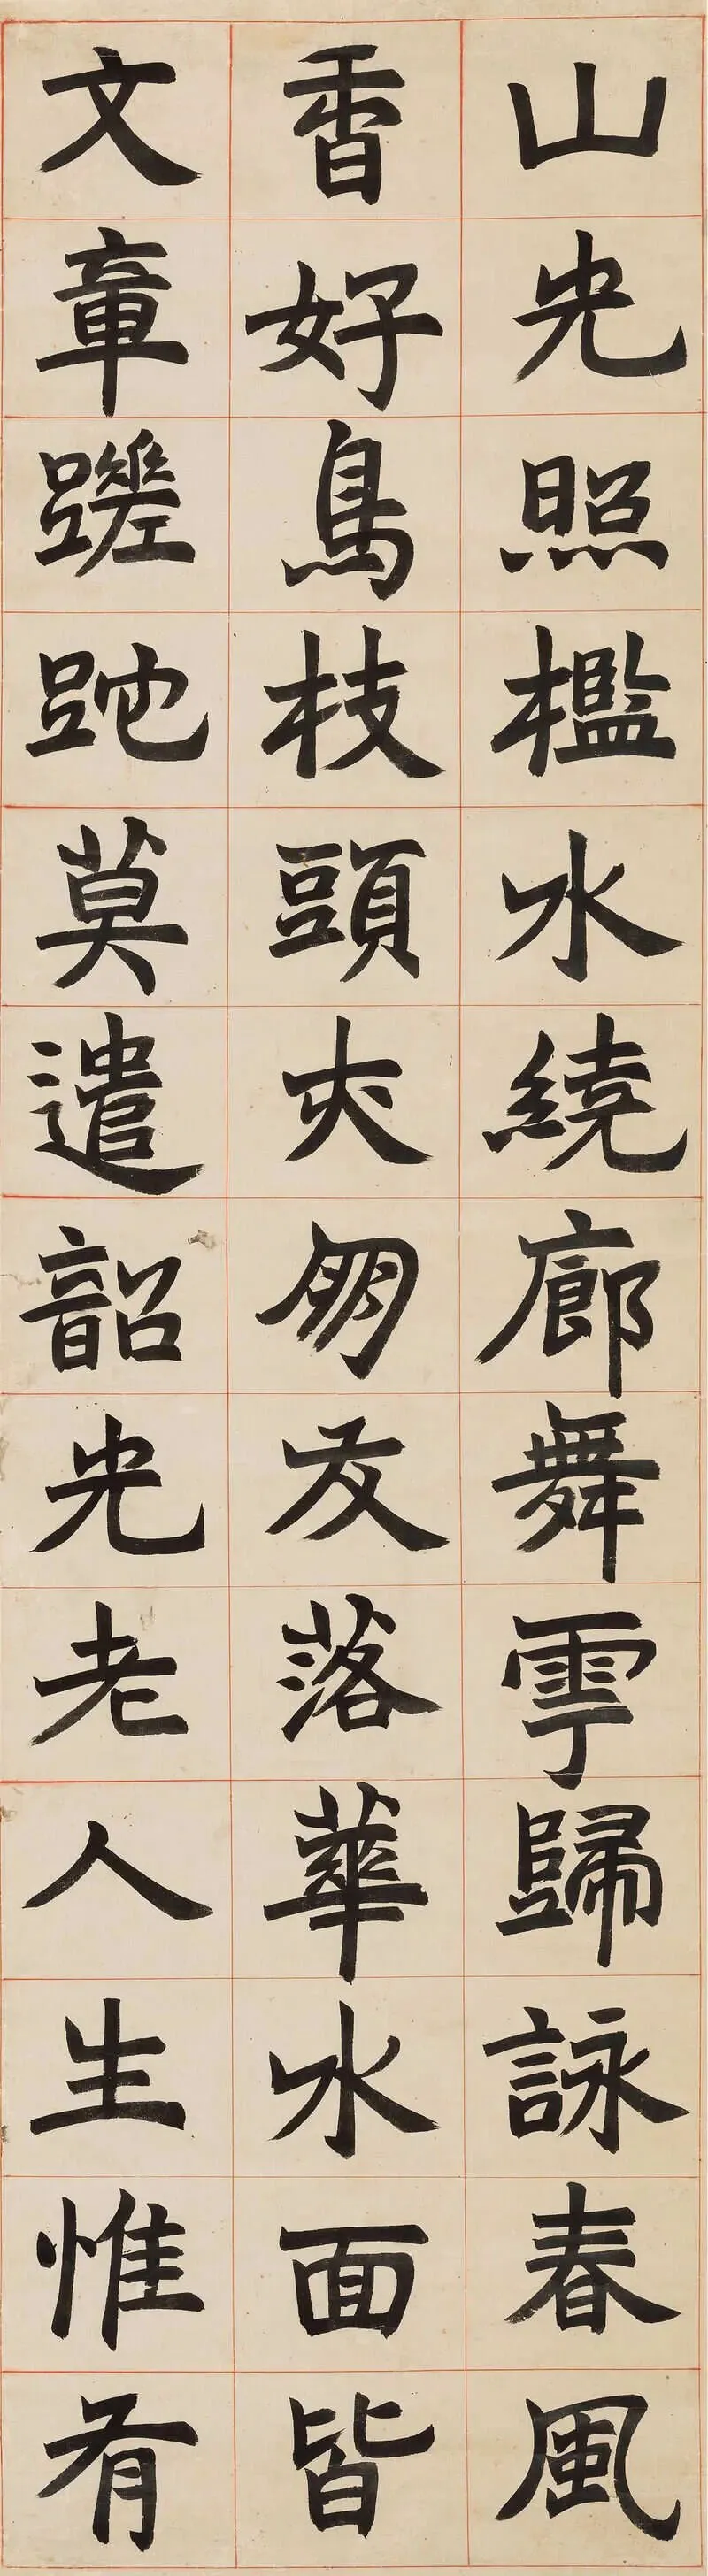 山光照檻水繞廊舞雩歸詠春風
香好鳥枝頭亦朋友落華水面皆
文章蹉跎莫遣韶光老人生惟有